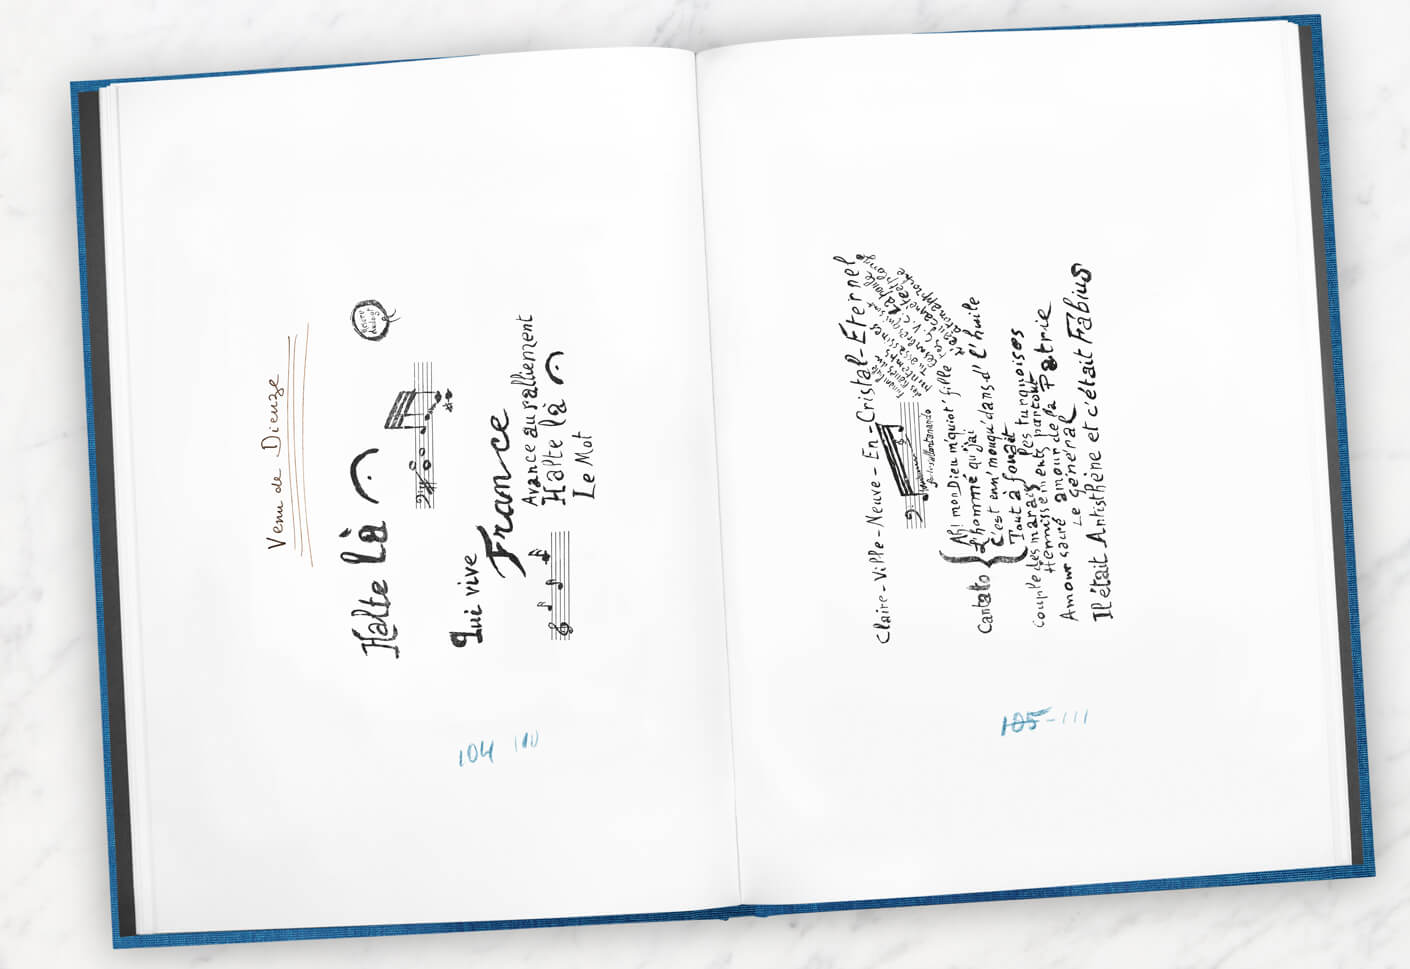 Venu de Dieuze
Halte là
Qui vive
France
Avance au ralliement
Halte là
Le Mot
104 110
Claire-Ville-Neuve-En-Cristal-Eternel
Cantato
Ah! mon Dieu m'quiot' fille
L'homme qu'j'ai
C'est enn' mouqu' dans d' l'huile
Tout à fouait
Couple des marais les turquoises
Hennissements partout
Amour sacré amour de la Patrie
Le général
Il était Antisthène et c'était Fabius
105-111